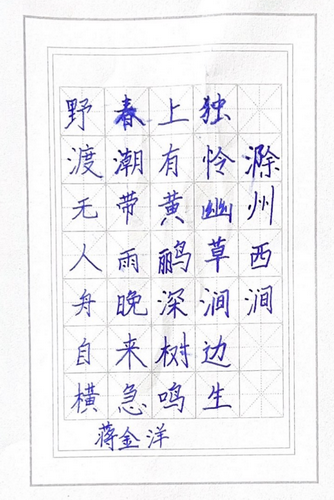 滁州西涧
独怜幽草涧边生
上有黄鹂深树鸣
春潮带雨晚来急
野渡无人舟自横
蒋金洋